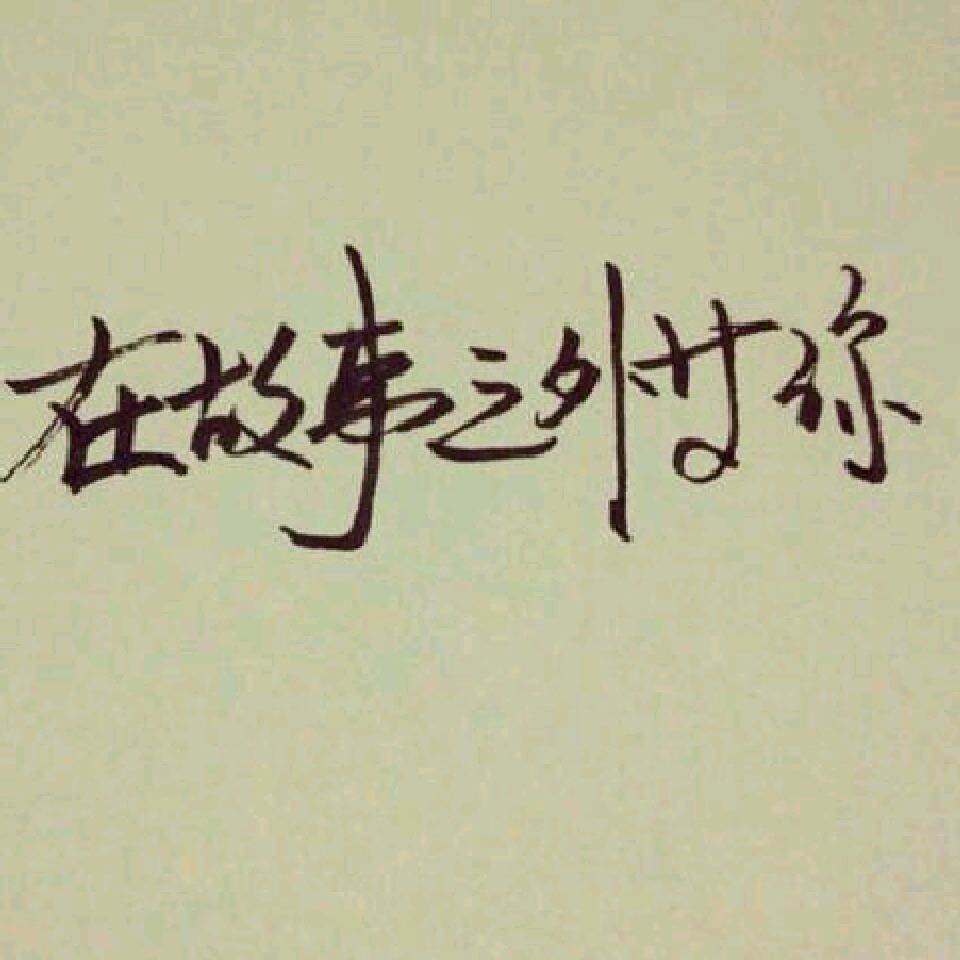 在故事之外你